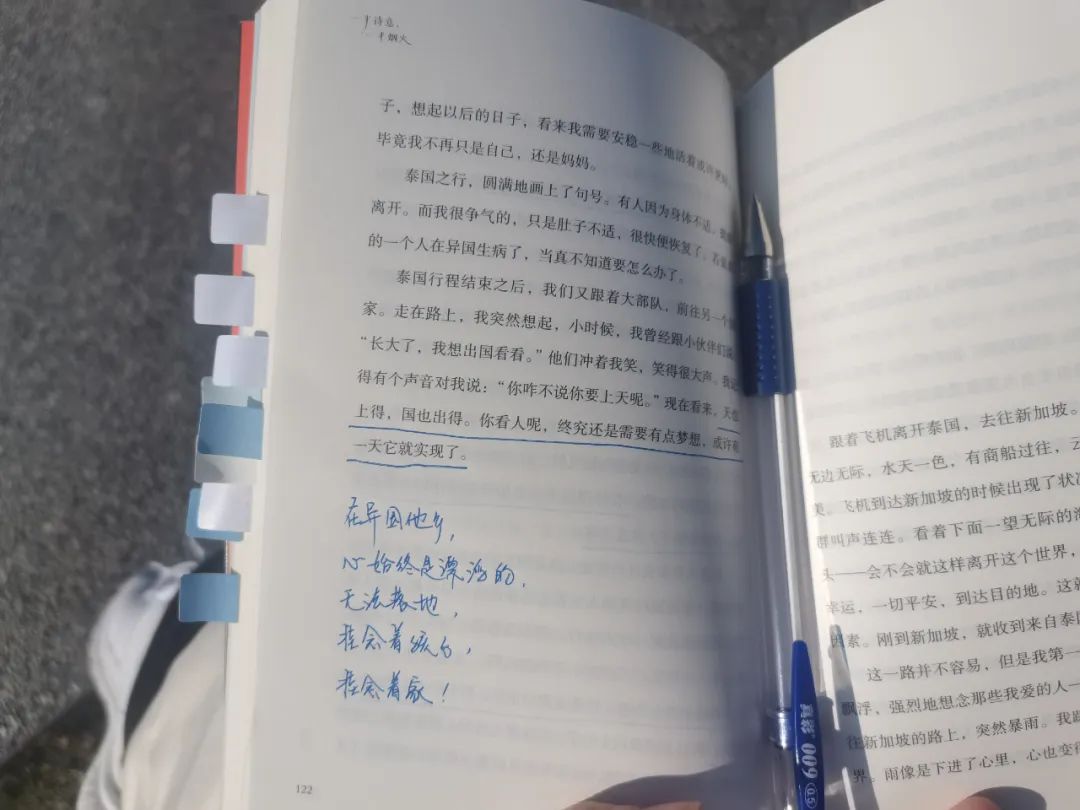 一半诗意，
一半烟火
子，想起以后的日子，看来我需要安稳一些地活着或许更好，
毕竟我不再只是自己，还是妈妈。
泰国之行，圆满地画上了句号。有人因为身体不适，
离开。而我很争气的，只是肚子不适，很快便恢复了。若
的一个人在异国生病了，当真不知道要怎么办了。
泰国行程结束之后，我们又跟着大部队，前往另一个
家。走在路上，我突然想起，小时候，我曾经跟小伙伴们说
“长大了，我想出国看看。”他们冲着我笑，笑得很大声。我
得有个声音对我说：“你咋不说你要上天呢。”现在看来，天也
上得，国也出得。你看人呢，终究还是需要有点梦想，或许有
一天它就实现了。
在异国他乡，
心始终是漂浮的，
无法落地，
挂念着孩子，
挂念着家！
122
跟着飞机离开泰国，去往新加坡。
无边无际，水天一色，有商船过往，云
美。飞机到达新加坡的时候出现了状况
群叫声连连。看着下面一望无际的海
头——会不会就这样离开这个世界，
幸运，一切平安，到达目的地。这就
因素。刚到新加坡，就收到来自泰国
这一路并不容易，但是我第一
飘浮，强烈地想念那些我爱的人一
往新加坡的路上，突然暴雨。我
界。雨像是下进了心里，心也变得
真彩 009 0.5